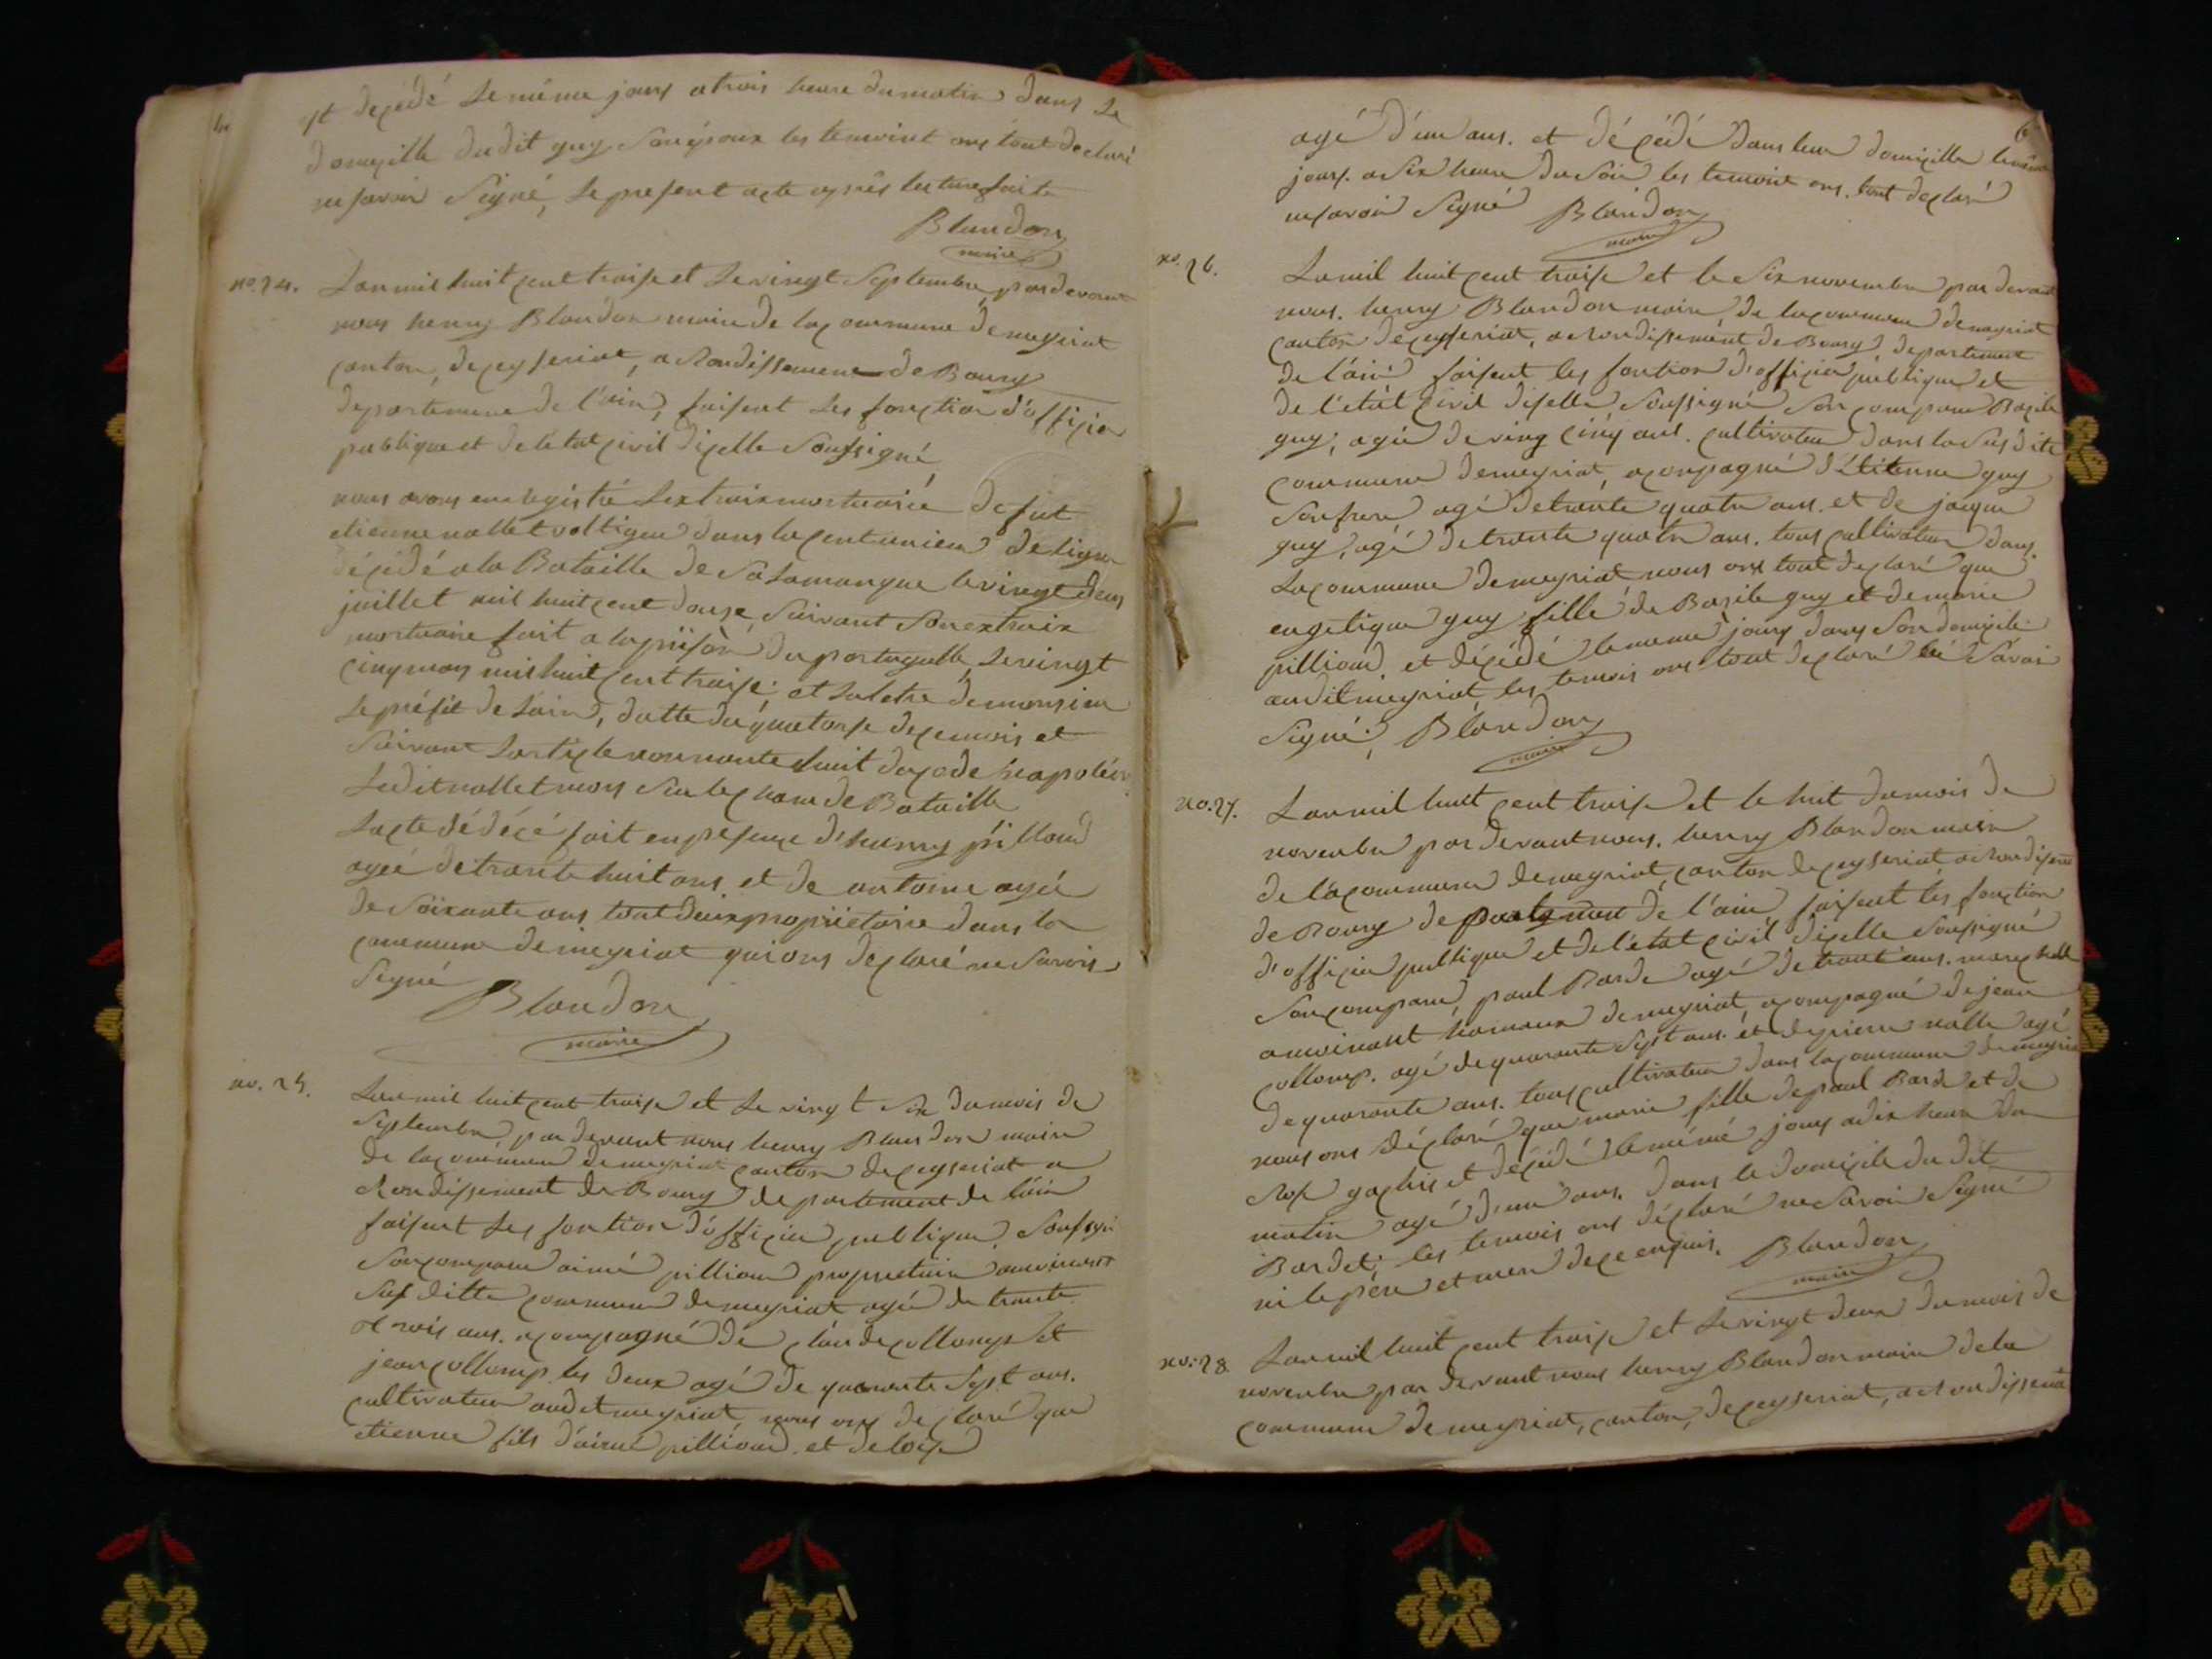 est decédé le même jours a trois heure du matin dans le
domicille du dit guy son époux les temoint ons tout declaré
ne savoir Signé, le present acte après lecture faite
Blandon
maire
no. 24. Lan mil huit cent traise et le vingt Septembre par devant
nous henry Blandon maire de la commune de meyriat
canton, de ceyseriat, a Rondissement de Bourg
departement de l'ain, faisent les fonction d'officier
publique et de létat civil dicelle Soussigné
nous avons enregistré lextraix mortuaire de fut
etienne nallet voltigeur dans la de ligne
décédé a la Bataille de Salamanque le vingt deus
juillet mil huit cent douse, suivant son extraix
mortuaire fait a la prison du portugalle, le vingt
cinq mars mil huit cent traise. et la letre de monsieur
le préfét de lain, datte du quatorse de ce mois et
suivant lartîcle nonnante huit du code napoléon
ledit nallet mors sur le chans de Bataille
lacte de décé fait en presence d'henry pilloud
agée de trante huit ans. et de antoine agée
de Soixante ans tout deux propriétaire dans la
commune de meyriat qui ons declaré ne Savoir
Signé
Blandon
maire
no. 25. Lan mil huit cent traise et le vingt Six du mois de
Septembre par devant nous henry Blandon maire
de la commune de meyriat canton de ceyseriat a
Rondissement de Bourg departement de l'ain
faisent les fontion d'officier publique. Soussigné
Son comparu aimé pilliou propriétaire
Susditte commune de meyriat agée de trante
trois ans. acompagné de claude collomp et
jean collomp les deux agé de quarante Sept ans.
cultivateur audit meyriat, nous ons declaré que
etienne fils d'aimé pillioud. et de loise
6
agé d'un ans. et décédé dans leur domicille le même
jours. a Six heure du Soir les temoint ons. tout declaré
ne savoir Signé Blandon
maire
no. 26. La mil huit cent traise et le Six novembre par devant
nous. henry Blandon maire de la commune de meyriat
canton de ceyseriat, a Rondissement de Bourg departement
de l'ain faisent les fontion d'officier publique et
de l'etat civil dicelle Soussigné Son comparu Basile
guy, agé de ving cinq ans. cultivateur dans la Susdite
commune de meyriat, acompagné d'Etienne guy
Son frere agé de trante quatre ans. et de jacque
guy, agé de trante quatre ans. tous cultivateur dans
la commune de meyriat nous ons tout declaré que
engelique guy fille de Basile guy et de marie
pilliou. et décédé le meme jours dans Son domicile
audit meyriat, les temois ons tout declaré né Savoir
Signé, Blandon
maire
no. 27. Lan mil huit cent traise et le huit du mois de
novembre par devant nous. henry Blandon maire
de la commune de meyriat canton de ceyseriat a Rondisement
de Bourg departement de l'ain, faisent les fonction
d'officier publique et de l'état civil dicelle Soussigné
Son comparu paul Barde agé de trante ans. marechalle
hameaux de meyriat, acompagné de jean
collomp. agé de quarante Sept ans. et de pierre nallet agé
de quarante ans. tous cultivateur dans la commune de meyriat
nous ons déclaré que marie fille de paul Barde et de
Rose et décédé le mémé jours a dix heure du
matin agé d'un ans. dans le domicile du dit
Bardet; les temois ons déclaré ne Savoir Signé
ni le père et de ce enquis. Blandon
maire
no. 28 Lan mil huit cent traise et le vingt deux du mois de
novembre par devant nous henry Blandon maire de la
commune de meyriat, canton, de ceyseriat, a Rondissement